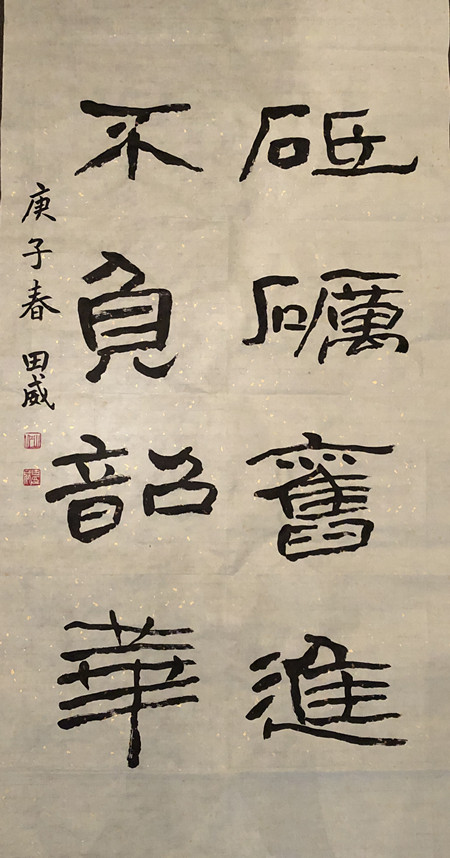 砥礪奮進
不負韶華
庚子春 田威